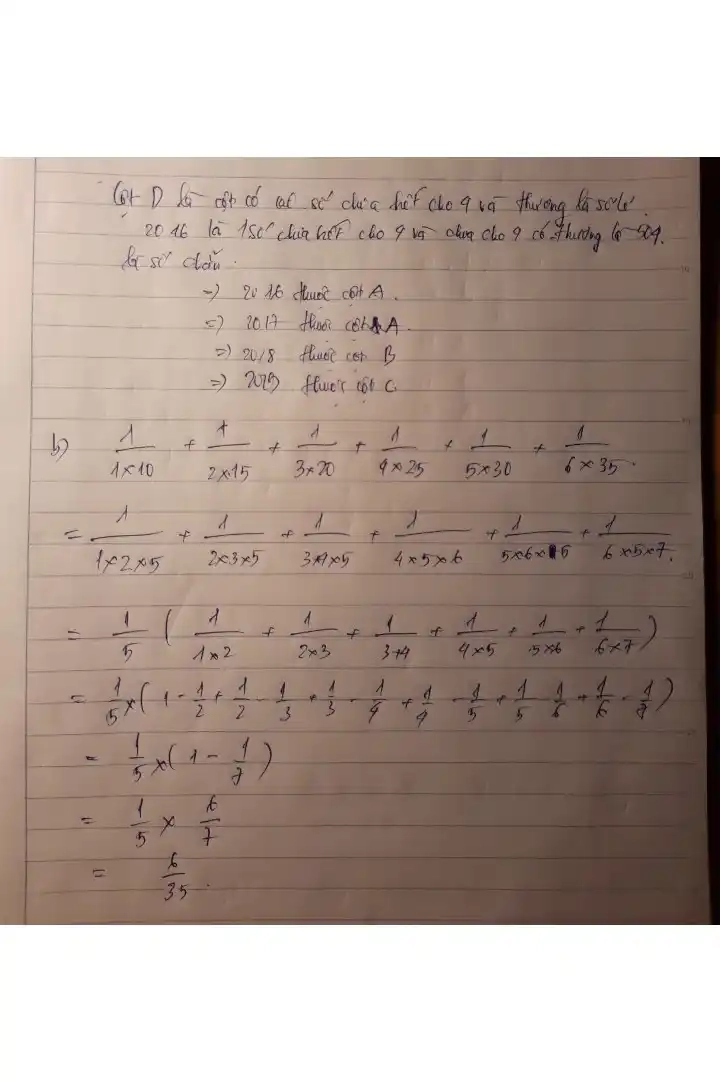 Cột D là cột có các số chia hết cho 4 và thương là số lẻ.
2016 là 1 số chia hết cho 4 và chia cho 4 có thương là 504.
là số chẵn.
=> 2016 thuộc cột A.
=> 2017 thuộc cột A.
=> 2018 thuộc cột B
=> 2019 thuộc cột C
b) 1/(1×10) + 1/(2×15) + 1/(3×20) + 1/(4×25) + 1/(5×30) + 1/(6×35).
= 1/(1×2×5) + 1/(2×3×5) + 1/(3×4×5) + 1/(4×5×6) + 1/(5×6×5) + 1/(6×5×7).
= 1/5 ( 1/(1×2) + 1/(2×3) + 1/(3×4) + 1/(4×5) + 1/(5×6) + 1/(6×7) )
= 1/5 × ( 1 - 1/2 + 1/2 - 1/3 + 1/3 - 1/4 + 1/4 - 1/5 + 1/5 - 1/6 + 1/6 - 1/7 )
= 1/5 × ( 1 - 1/7 )
= 1/5 × 6/7
= 6/35.